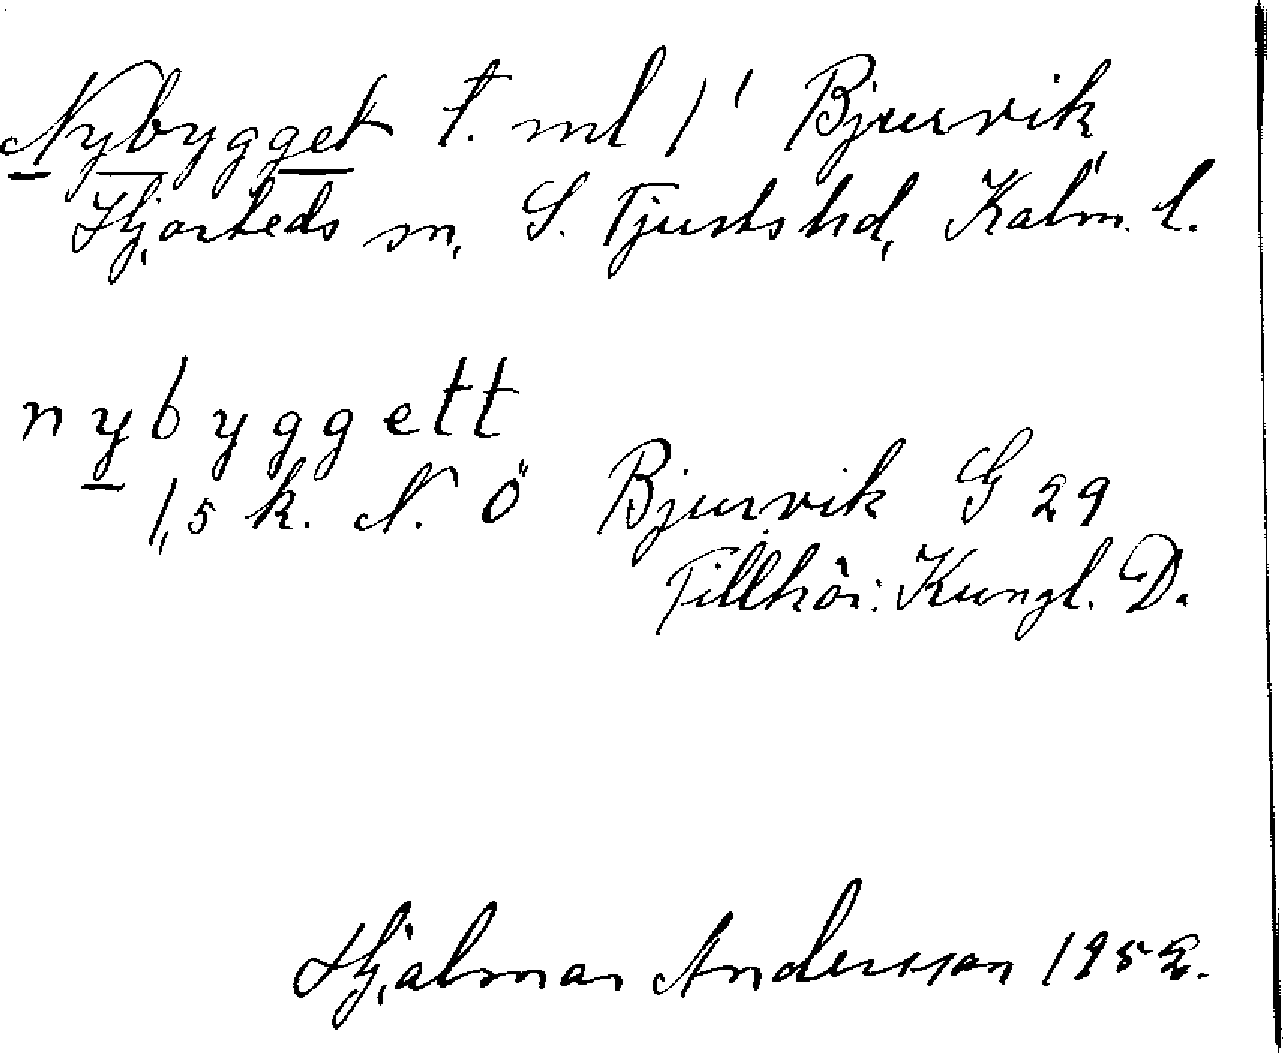 Nybygget t. ml 1' Bjurvik,
Hjorteds sn, S. Tjusts hd, Kalm. l.
nybyggett
1,5 k. N. Ö Bjurvik G 29
Tillhör: Kungl. D.
Hjalmar Andersson 1952.